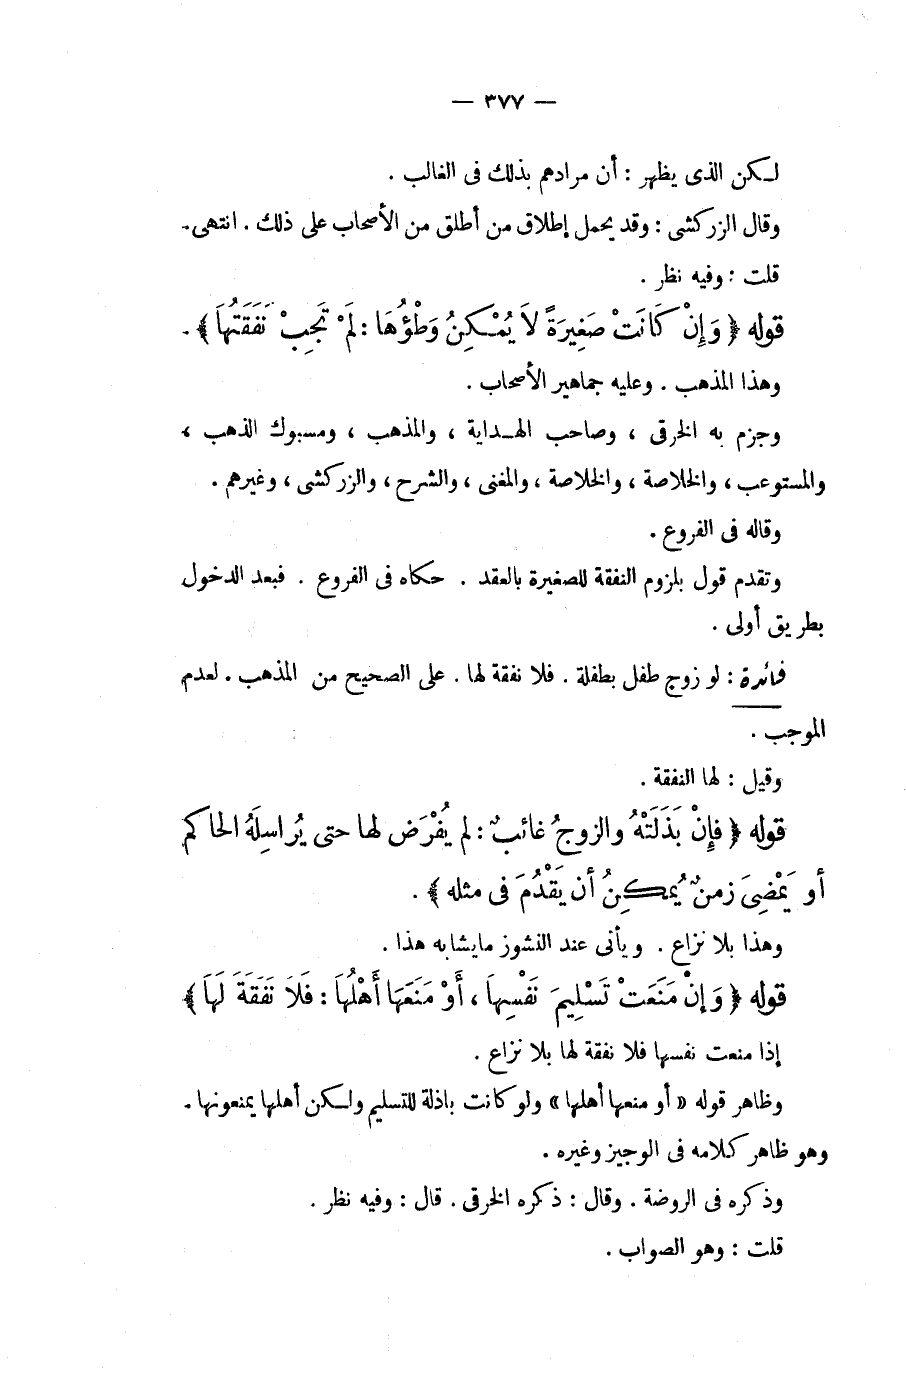 — ٣٧٧ —
لكن الذى يظهر : أن مرادهم بذلك فى الغالب .
وقال الزركشى : وقد يحمل إطلاق من أطلق من الأصحاب على ذلك . انتهى .
قلت : وفيه نظر .
قوله ﴿ وَإِنْ كَانَتْ صَغِيرَةً لاَ يُمْكِنُ وَطْؤُهَا : لَمْ تَجِبْ نَفَقَتُهَا ﴾ .
وهذا المذهب . وعليه جماهير الأصحاب .
وجزم به الخرقى ، وصاحب الهداية ، والمذهب ، ومسبوك الذهب ،
والمستوعب ، والخلاصة ، والخلاصة ، والمغنى ، والشرح ، والزركشى ، وغيرهم .
وقاله فى الفروع .
وتقدم قول بلزوم النفقة للصغيرة بالعقد . حكاه فى الفروع . فبعد الدخول
بطريق أولى .
فائدة : لو زوج طفل بطفلة . فلا نفقة لها . على الصحيح من المذهب . لعدم
الموجب .
وقيل : لها النفقة .
قوله ﴿ فإِنْ بَذَلَتْهُ والزوجُ غائبٌ : لم يُفْرَض لها حتى يُرَاسِلَهُ الحاكم
أو يَمْضِىَ زمنٌ يُمكِنُ أن يَقْدُمَ فى مثله ﴾ .
وهذا بلا نزاع . ويأتى عند النشوز مايشابه هذا .
قوله ﴿ وَإِنْ مَنَعَتْ تَسْلِيمَ نَفْسِهاَ ، أَوْ مَنَعَهَا أَهْلُهَا : فَلاَ نَفَقَةَ لَهَا ﴾
إذا منعت نفسها فلا نفقة لها بلا نزاع .
وظاهر قوله « أو منعها أهلها » ولو كانت باذلة للتسليم ولكن أهلها يمنعونها .
وهو ظاهر كلامه فى الوجيز وغيره .
وذكره فى الروضة . وقال : ذكره الخرقى . قال : وفيه نظر .
قلت : وهو الصواب .